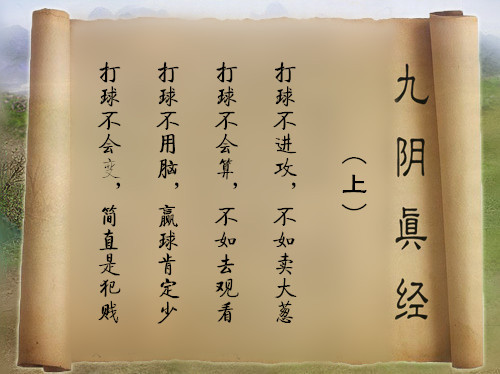 九阴眞经
（上）
打球不进攻，不如卖大葱
打球不会算，不如去观看
打球不用脑，赢球肯定少
打球不会变，简直是犯贱